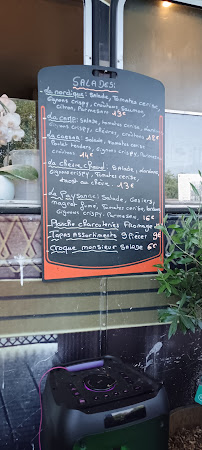 SALADES:
La nordique: Salade, Tomates cerise,
oignons crispy, croûtons, Saumon,
Citron, Parmesane 13€
La corse: Salade, tomates cerise,
oignons crispy, croûtons 18€
La caesar: Salade, tomates cerise
Poulet tenders, oignons crispy, Parmesan,
croûtons 14€
La chèvre-chaud: Salade,
oignons crispy, Tomates cerise,
toast au chèvre. 13€
La Paysanne: Salade, Gésiers,
magret fumé, Tomates cerise, lardons
oignons crispy, Parmesan, 16€
Planche charcuteries Fromage
Tapas assortiments 9 Pièces 9€
Croque monsieur Salade 6€